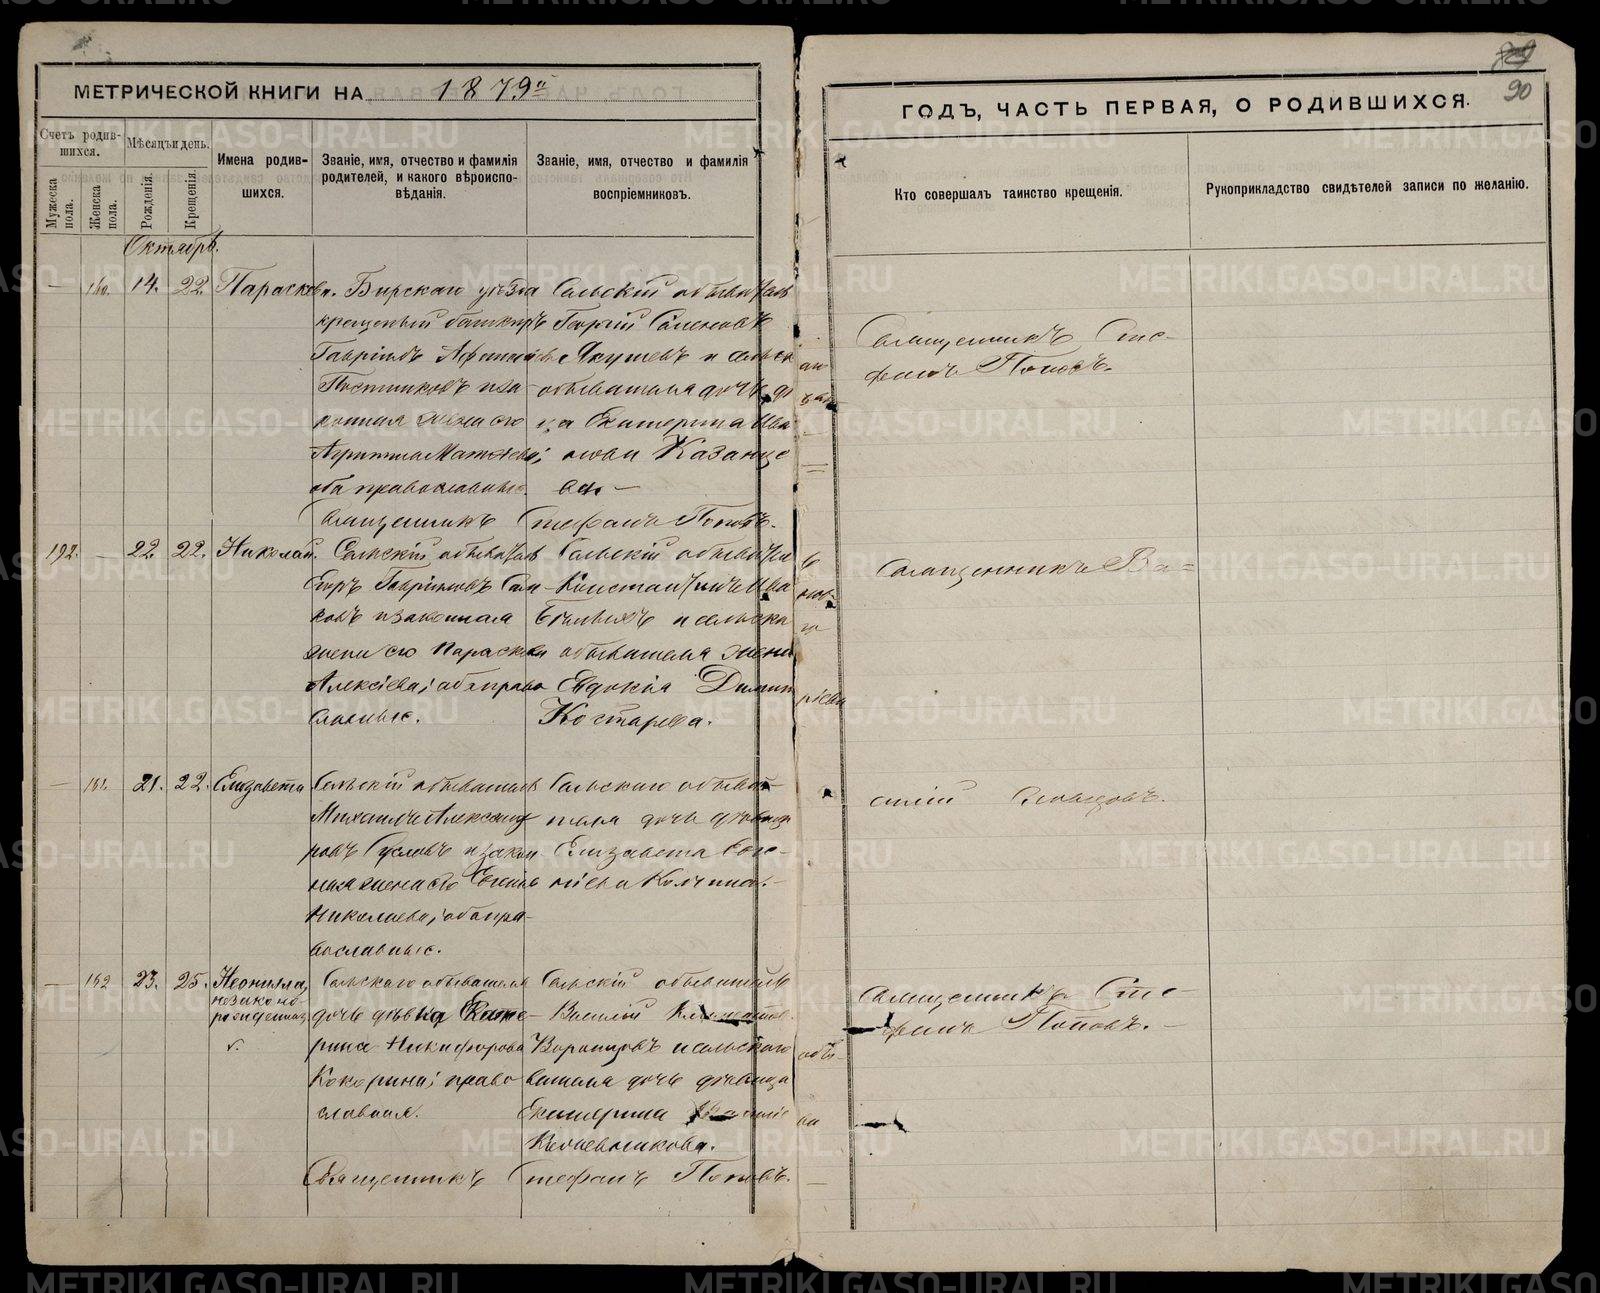 89
90
МЕТРИЧЕСКОЙ КНИГИ НА 1879й
ГОДЪ, ЧАСТЬ ПЕРВАЯ, О РОДИВШИХСЯ.
Счетъ родив-
шихся.
Мѣсяцъ и день.
Мужеска
пола.
Женска
пола.
Рожденія.
Крещенія.
Имена родив-
шихся.
Званіе, имя, отчество и фамилія
родителей, и какого вѣроиспо-
вѣданія.
Званіе, имя, отчество и фамилія
воспріемниковъ.
Кто совершалъ таинство крещенія.
Рукоприкладство свидѣтелей записи по желанію.
Октябрь.
— 160. 14. 22. Параскева.
Бирскаго уѣзда
крещеный башкиръ
Гавріилъ Афанасьевъ
Постниковъ и за-
конная жена его
Матвѣева;
оба православные.
Сельскій обыватель
Георгій
Якушевъ и сельск
обывателя дочь дѣ
ца Екатерина Ива
нова Казанце
ва. —
Священникъ Сте-
фанъ Поповъ.
Священникъ Стефанъ Поповъ.
192. — 22. 22. Николай.
Сельскій обыватель
Гавриловъ
и законная
жена его Параскева
Алексіева; оба право
славные.
Сельскій обыватель
Константинъ Ива
и сельска
обывателя жена
Евдокія Димит
ріева
Костарева.
Священникъ Ва=
силій Словцовъ.
— 161. 21. 22. Елизавета
Сельскій обыватель
Михаилъ Александ
ровъ Гусловъ и закон
ная жена его
Николаева; оба пра-
вославные.
Сельскаго обыва-
теля дочь дѣвица
Елизавета
— 162 23. 25. Неонилла,
незаконо-
рожденная
Сельскаго обывателя
дочь дѣвка Кате-
рина Никифорова
Кокорина; право
славная.
Сельскій обыватель
Василій
Воронцовъ и сельскаго обы-
вателя дочь дѣвица
Екатерина
Священникъ Сте-
фанъ Поповъ. —
Священникъ Стефанъ Поповъ. —
METRIKI.GASO-URAL.RU